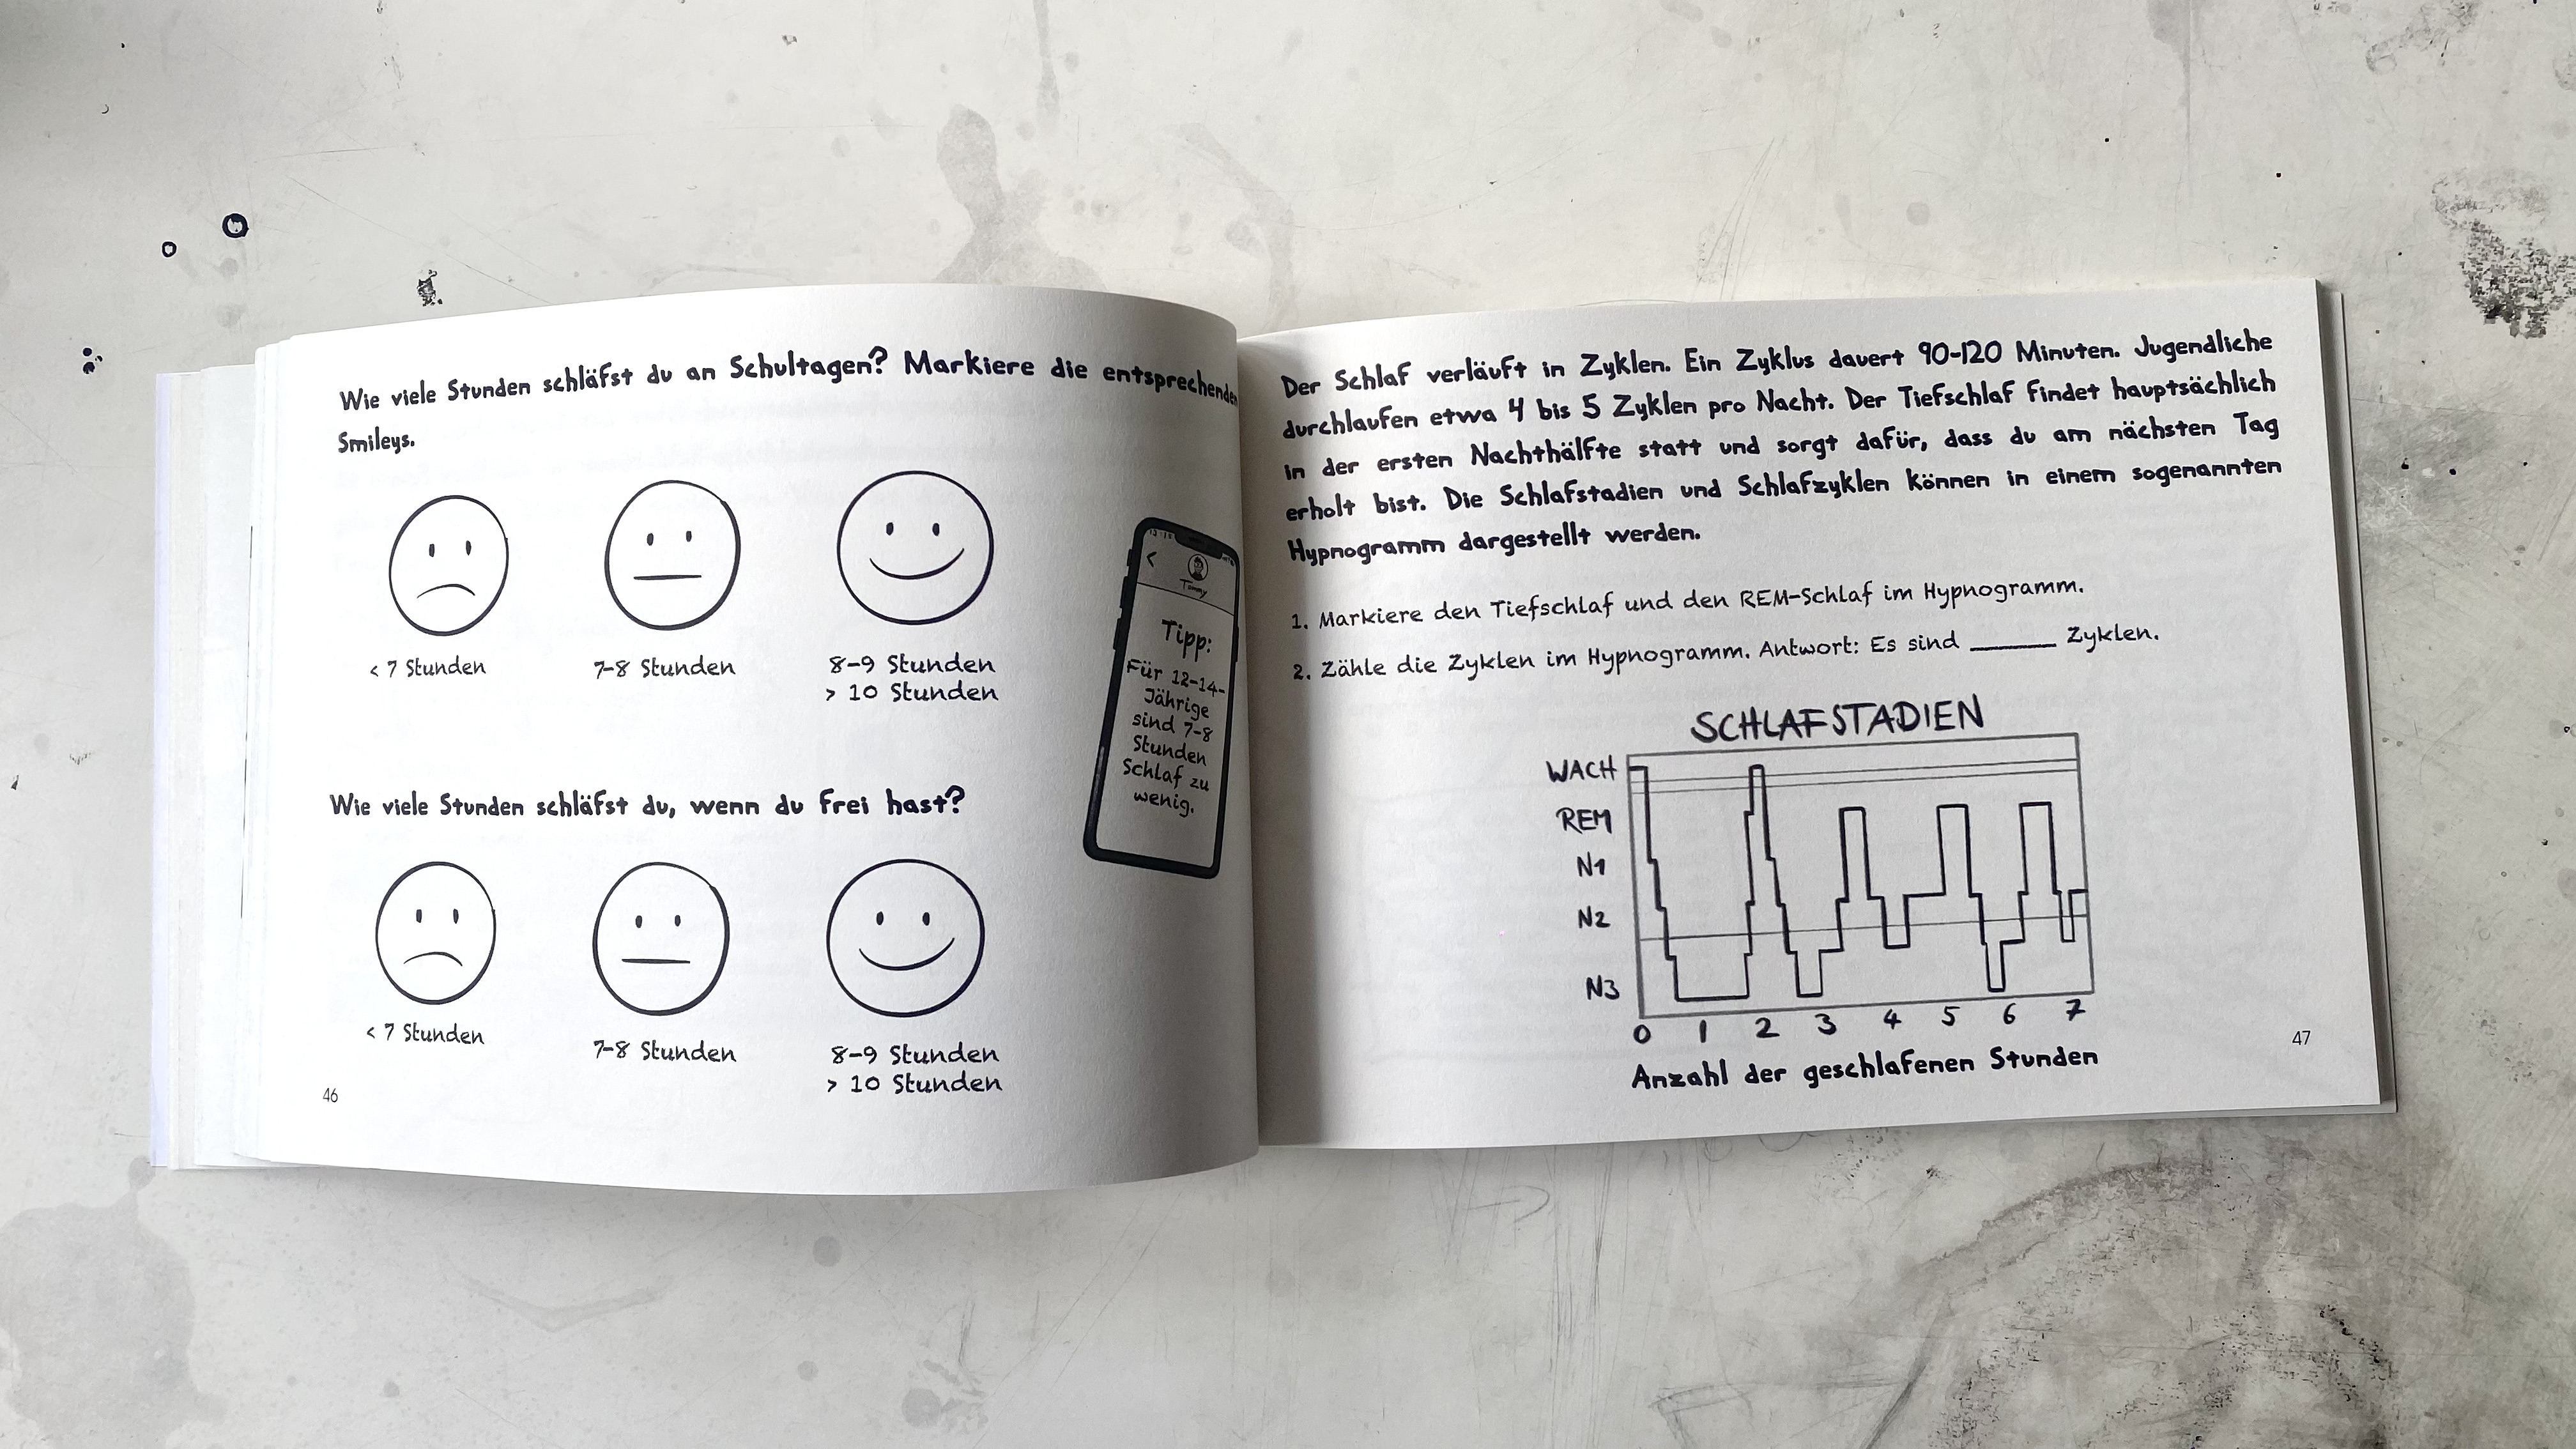 Wie viele Stunden schläfst du an Schultagen? Markiere die entsprechenden
Smileys.
< 7 Stunden
7-8 Stunden
8-9 Stunden
> 10 Stunden
Tommy
Tipp:
Für 12-14-
Jährige
sind 7-8
Stunden
Schlaf zu
wenig.
Wie viele Stunden schläfst du, wenn du frei hast?
< 7 Stunden
7-8 Stunden
8-9 Stunden
> 10 Stunden
46
Der Schlaf verläuft in Zyklen. Ein Zyklus dauert 90-120 Minuten. Jugendliche
durchlaufen etwa 4 bis 5 Zyklen pro Nacht. Der Tiefschlaf findet hauptsächlich
in der ersten Nachthälfte statt und sorgt dafür, dass du am nächsten Tag
erholt bist. Die Schlafstadien und Schlafzyklen können in einem sogenannten
Hypnogramm dargestellt werden.
1. Markiere den Tiefschlaf und den REM-Schlaf im Hypnogramm.
2. Zähle die Zyklen im Hypnogramm. Antwort: Es sind ______ Zyklen.
SCHLAFSTADIEN
WACH
REM
N1
N2
N3
0 1 2 3 4 5 6 7
Anzahl der geschlafenen Stunden
47